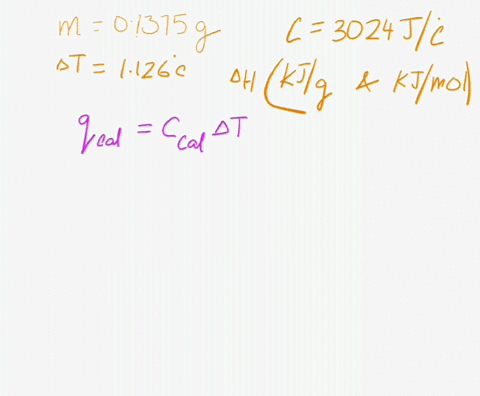 m = 0.1375 g
C = 3024 J/°c
ΔT = 1.126°c
ΔH (KJ/g & KJ/mol)
qcal = Ccal ΔT